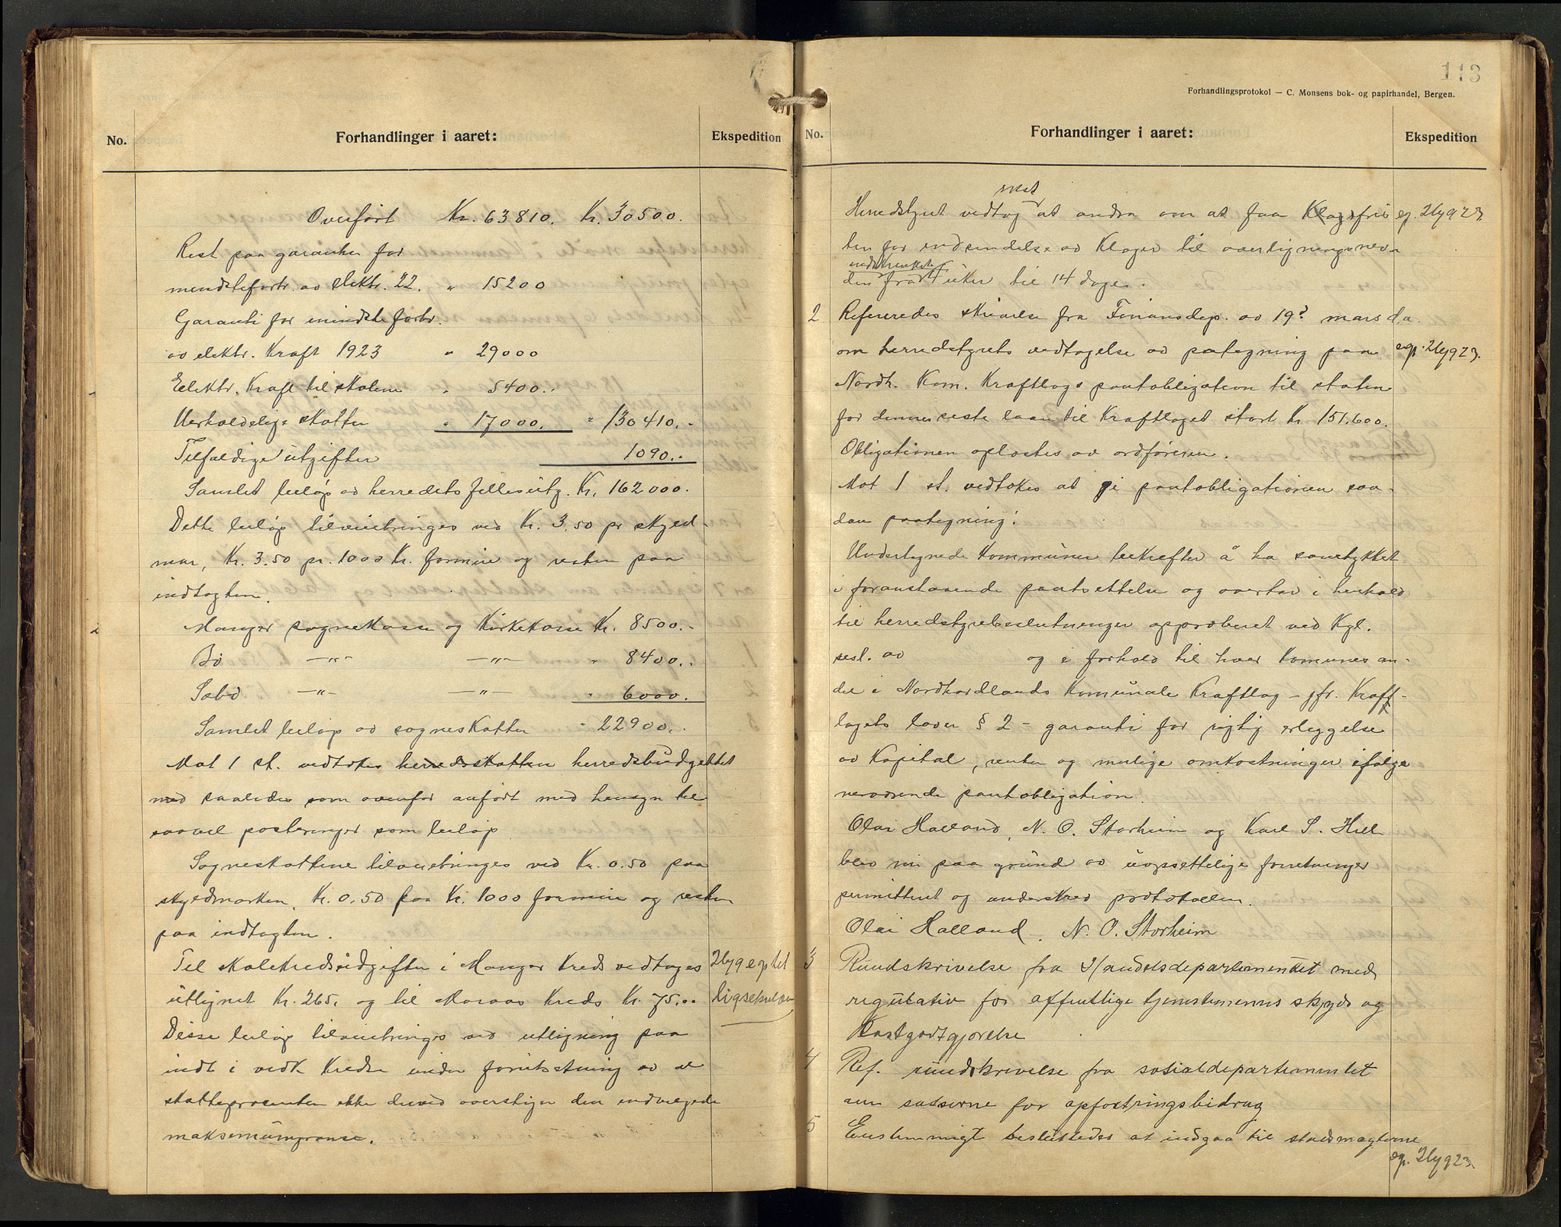 No. Forhandlinger i aaret: Ekspedition
Overført Kr. 63810. Kr. 30500.
Rest paa garantien for
mindsteforbr. av elektr. 22. " 15200
Garanti for mindste forbr.
av elektr. Kraft 1923 " 29000
Elektr. Kraft til skolene " 5400.-
Uerholdelige skatter " 17000. " 130410.-
Tilfældige utgifter 1090.-
Samlet beløp av herredets fellesutg. Kr. 162000.
Dette beløp tilveiebringes ved Kr. 3.50 pr skyld-
mar, Kr. 3.50 pr. 1000 Kr. formue og resten paa
indtægten.
Manger sognekasse og Kirkekasse Kr. 8500.-
Bø —"— —"— " 8400.-
Sæbø —"— —"— " 6000.-
Samlet beløp av sogneskatten " 22900.-
Mot 1 st. vedtokes herredsskatten herredsbudgettet
med saaledes som ovenfor anført med hensyn til
saavel posteringer som beløp.
Sogneskattene tilveiebringes ved Kr. 0.50 paa
skyldmarken, Kr. 0.50 paa Kr. 1000 formue og resten
paa indtægten.
Til skolekredsudgifter i Manger Kreds vedtoges
utlignet Kr. 265, og til Kreds Kr. 75,00
Disse beløp tilveiebringes ved utligning paa
indt i vedk Kredse under forutsætning av at
skatteprocenten ikke derved overstiger den endvegede
maksimumgrense.
113
Forhandlingsprotokol — C. Monsens bok- og papirhandel, Bergen.
No. Forhandlinger i aaret: Ekspedition
mot
Herredstyret vedtog at andra om at faa Klagefris ep. 2/4 923
ten for indsendelse av Klager til overligningsnevn
indskrenket
den fra 4 uker til 14 dage.
2 Refereredes skrivelse fra Finansdep. av 19? mars d.a.
om herredstyrets vedtagelse av paategning paa ep. 2/4 923.
Nordh. Kom. Kraftlags pantobligation til staten
for dennes siste laan til Kraftlaget stort Kr 151.600.
Obligationen oplæstes av ordføreren.
Mot 1 st. vedtokes at gi pantobligationen saa-
dan paategning:
Undertegnede Kommune bekrefter å ha samtykket
i foranstaaende pantsettelse og overtar i henhold
til herredstyrebeslutninger approberet ved Kgl.
resl. av og i forhold til hver Kommunes an-
del i Nordhordlands Kommunale Kraftlag — jfr. Kraft-
lagets lover § 2 — garanti for rigtig erleggelse
av Kapital, renter og mulige omkostninger ifølge
nerværende pantobligation.
Olai Halland, N. O. Storheim og Karl S. Hill
blev nu paa grund av uopsettelige forretninger
permitteret og underskrev protokollen.
Olai Halland. N. O. Storheim
3 Rundskrivelse fra Handelsdepartementet med
regulativ for offentlige tjenestemenns skyds og
Kostgodtgjørelse
4 Ref. rundskrivelse fra socialdepartementet
om satserne for opfostringsbidrag
5 Enstemmigt besluttedes at indgaa til statsmagterne
ep. 2/4 923.